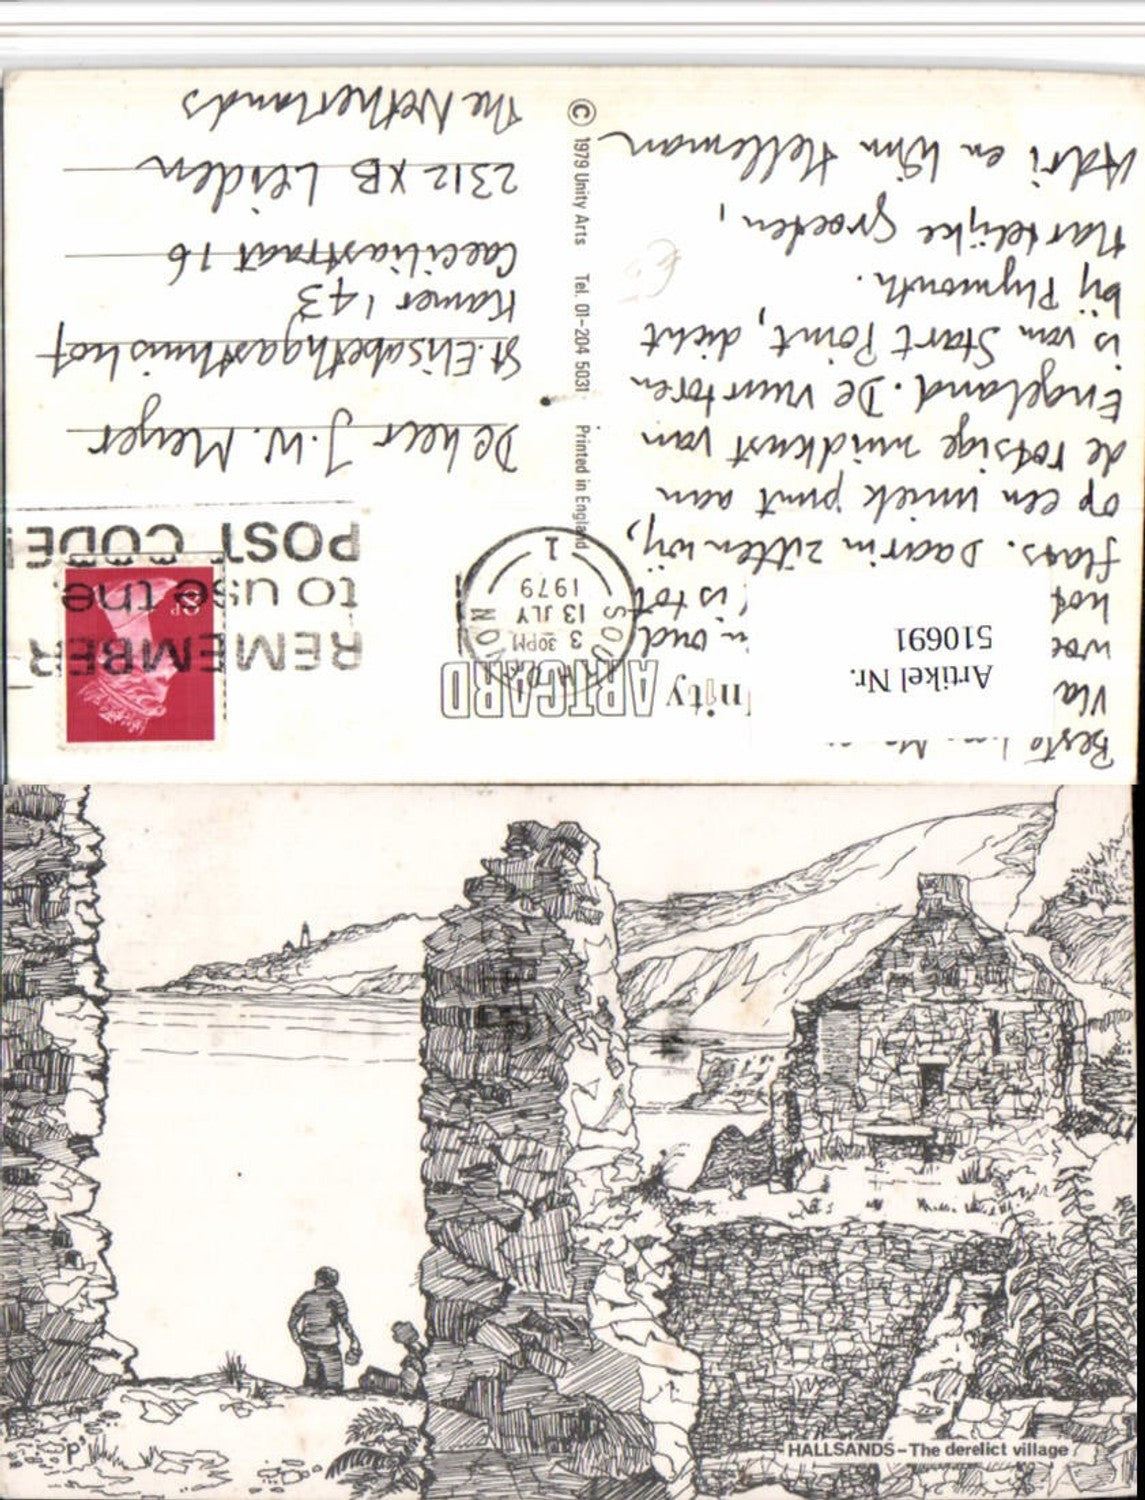 Beste
Vla
woe
hot is tot
flaas. Daarin zitten wij,
op een uniek punt aan
de rotsige zuidkust van
Engeland. De vuurtoren
is van Start Point, dicht
bij Plymouth.
Hartelijke groeten,
Adri en Wim Helleman
Artikel Nr.
510691
nity ARTCARD
© 1979 Unity Arts Tel. 01-204 5031 Printed in England
SOUTH DEVON
3 30PM
13 JLY
1979
1
REMEMBER
to use the
POST CODE!
8P
De heer J.W. Meijer
St. Elisabethgasthuishof
Kamer 143
Caeciliastraat 16
2312 XB Leiden
The Netherlands
HALLSANDS – The derelict village
'P'